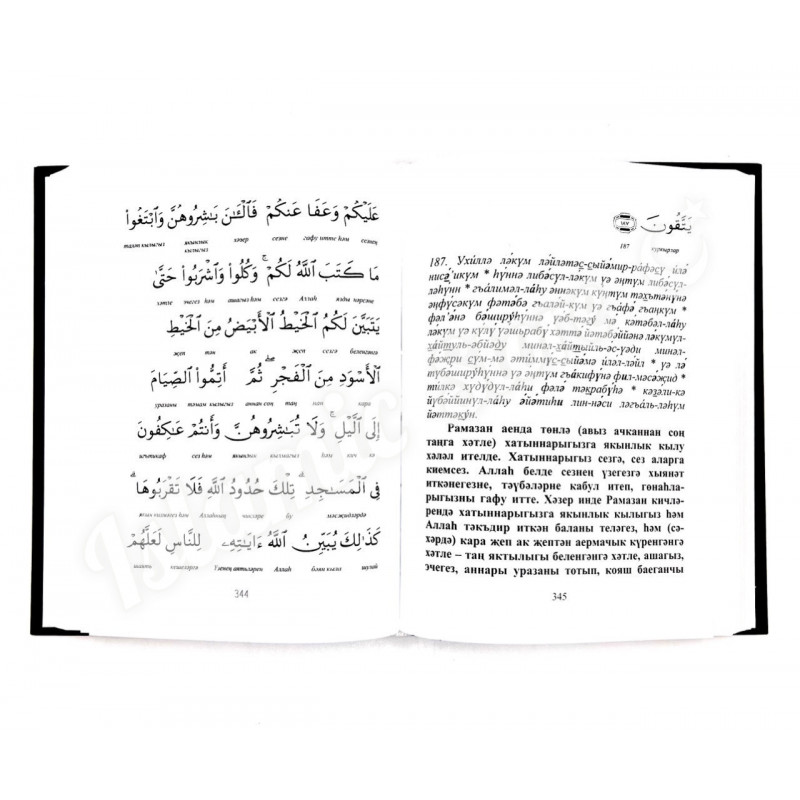 عَلَيْكُمْ وَعَفَا عَنكُمْ فَٱلْـَٰٔنَ بَـٰشِرُوهُنَّ وَٱبْتَغُوا۟
тәүбә кылыгыз якынлык хәзер сезне гафу итте һәм сезнең
кылыгыз
مَا كَتَبَ ٱللَّهُ لَكُمْ ۚ وَكُلُوا۟ وَٱشْرَبُوا۟ حَتَّىٰ
хәтле эчегез һәм ашагыз һәм сезгә Аллаһ язды нәрсәне
يَتَبَيَّنَ لَكُمُ ٱلْخَيْطُ ٱلْأَبْيَضُ مِنَ ٱلْخَيْطِ
җеп тән ак җеп сезгә беленгәнгә
ٱلْأَسْوَدِ مِنَ ٱلْفَجْرِ ۖ ثُمَّ أَتِمُّوا۟ ٱلصِّيَامَ
уразаны тәмам кылыгыз аннан соң таң нан кара
إِلَى ٱلَّيْلِ ۚ وَلَا تُبَـٰشِرُوهُنَّ وَأَنتُمْ عَـٰكِفُونَ
игътикаф сез һәм якынлык кылмагыз һәм кич кә
فِى ٱلْمَسَـٰجِدِ ۗ تِلْكَ حُدُودُ ٱللَّهِ فَلَا تَقْرَبُوهَا ۗ
якын килмәгез һәм Аллаһның чикләре бу мәсҗидләрдә
كَذَٰلِكَ يُبَيِّنُ ٱللَّهُ ءَايَـٰتِهِۦ لِلنَّاسِ لَعَلَّهُمْ
шаять кешеләргә Үзенең аятьләрен Аллаһ бәян кылыр шулай
344
يَتَّقُونَ ١٨٧
187 куркырлар
187. Ухиллә лә́күм ләйләтәс̣-с̣ыйә́мир-рафәсү илә́
нисә́икүм * һүннә либә́сүл-ләкүм үә әңтүм либә́сүл-
ләһүнн * гъәлимәл-лаһу әннәкүм күңтүм тәхтәнүнә
әңфүсәкүм фәтәбә гъәләй-күм үә гъәфә гъәңкүм *
фәл-ә́нә бәширүһүннә үәб-тәгү мә кәтәбәл-лаһу
ләкүм үә кулү үәшрабү хәттә йәтәбәййәнә ләкүмүл-
хайтуль-әбйәду минәл-хайтыйль-әс-үәди минәл-
фәҗри сүм-мә әтиммус-сыйәмә иләл-ләйл * үә лә
түбәширүһүннә үә әңтүм гъәкифүнә фил-мәсәҗид *
тилкә хүдүдүл-лаһи фәлә тәкрабүһә * кәзәли-кә
йүбәййинүл-лаһу әйәтиһи лин-нәси ләгъәль-ләһүм
йәттәкун.
Рамазан аенда төнлә (авыз ачканнан соң
таңга хәтле) хатыннарыгызга якынлык кылу
хәләл ителде. Хатыннарыгыз сезгә, сез аларга
киемсез. Аллаһ белде сезнең үзегезгә хыянәт
иткәнегезне, тәүбәләрне кабул итеп, гөнаһла-
рыгызны гафу итте. Хәзер инде Рамазан кичлә-
рендә хатыннарыгызга якынлык кылыгыз һәм
Аллаһ тәкъдир иткән баланы теләгез, һәм (сә-
хәрдә) кара җеп ак җептән аермачык күренгәнгә
хәтле – таң яктылыгы беленгәнгә хәтле, ашагыз,
эчегез, аннары уразаны тотып, кояш баеганчы
345